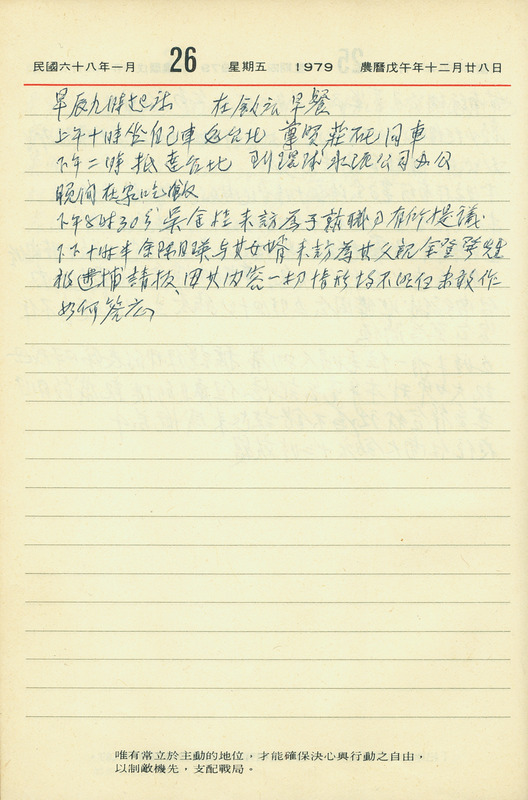 民國六十八年一月 26 星期五 1979 農曆戊午年十二月廿八日
早辰九時起床 在飲 早餐
上午十時坐自己車 台北 同車
下午二時抵達台北 到環球水泥公司办公
晚间在家吃飯
下午8時30分 吳金 來訪為子就職乃有所提議
下午十時半余陳月瑛与其女婿來訪為其父親余登發
被逮捕請 因其内容一切情形均不 
如何答应
唯有常立於主動的地位，才能確保決心與行動之自由，
以制敵機先，支配戰局。